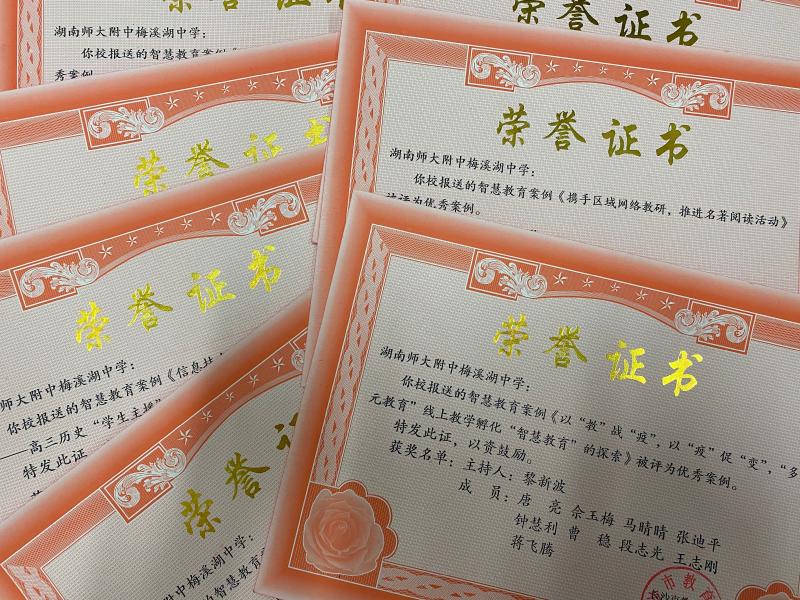 荣誉证书
湖南师大附中梅溪湖中学:
你校报送的智慧教育案例《
秀案例
荣誉证书
荣誉证书
荣誉证书
湖南师大附中梅溪湖中学:
你校报送的智慧教育案例《携手区域网络教研，推进名著阅读活动》
被评为优秀案例。
荣誉证书
师大附中梅溪湖中学:
你校报送的智慧教育案例《信息技
——高三历史“学生主播”
特发此证
荣誉证
湖南师大附中梅溪湖中学:
你校报送的智慧教育案
荣誉证书
湖南师大附中梅溪湖中学:
你校报送的智慧教育案例《以“教”战“疫”，以“疫”促“变”，“多
元教育”线上教学孵化“智慧教育”的探索》被评为优秀案例。
特发此证，以资鼓励。
获奖名单：主持人：黎新波
成 员：唐 亮 佘玉梅 马晴晴 张迪平
钟慧利 曹 稳 段志光 王志刚
蒋飞腾
市教育